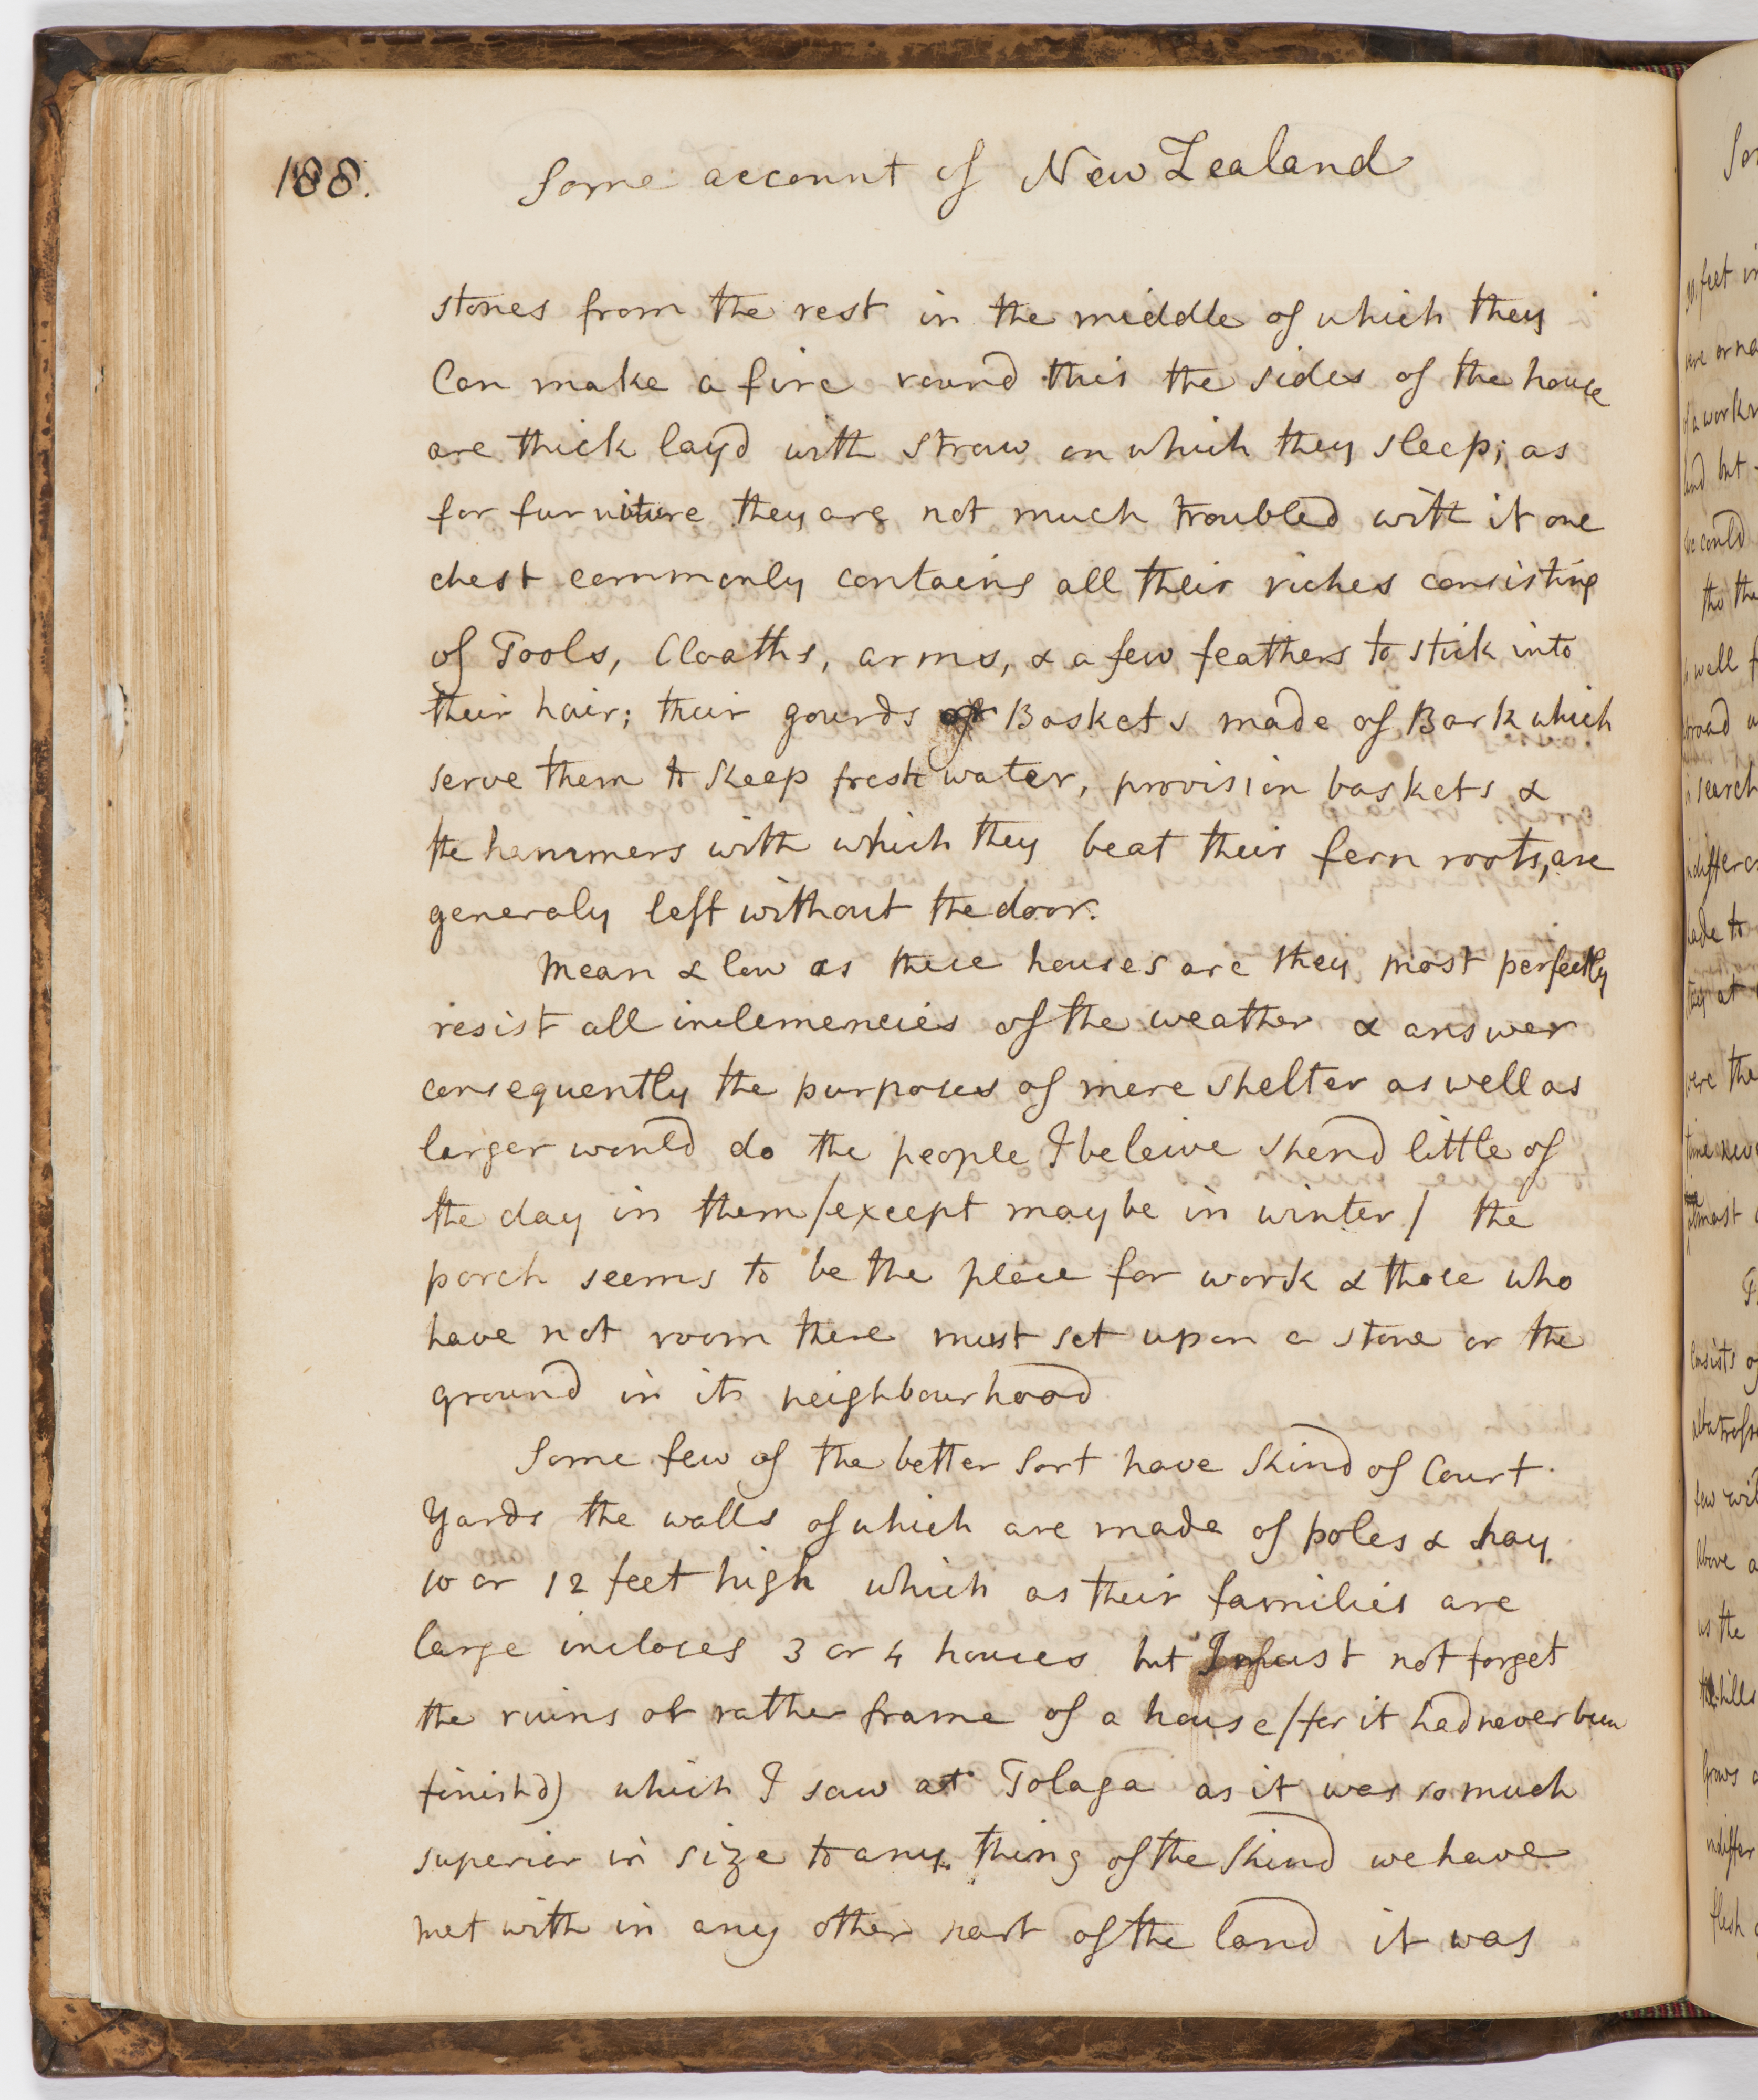 188.
Some account of New Zealand
stones from the rest in the middle of which they
Can make a fire round this the sides of the house
are thick layd with straw on which they sleep; as
for furniture they are not much troubled with it one
chest commonly contains all their riches consisting
of Tools, Cloaths, arms, & a few feathers to stick into
their hair; their gourds or Baskets made of Bark which
serve them to keep fresh water, provision baskets &
the hammers with which they beat their fern roots, are
generaly left without the door.
Mean & low as these houses are they most perfectly
resist all inclemencies of the weather & answer
consequently the purposes of mere shelter as well as
larger would do the people I beleive spend little of
the day in them/except may be in winter/ the
porch seems to be the place for work & those who
have not room there must set upon a stone or the
ground in its neighbourhood
Some few of the better sort have kind of Court
Yards the walls of which are made of poles & hay
10 or 12 feet high which as their families are
large incloses 3 or 4 houses but I must not forget
the ruins or rather frame of a house/for it had never been
finishd) which I saw at Tolaga as it was so much
superior in size to any thing of the kind we have
met with in any other part of the land it was